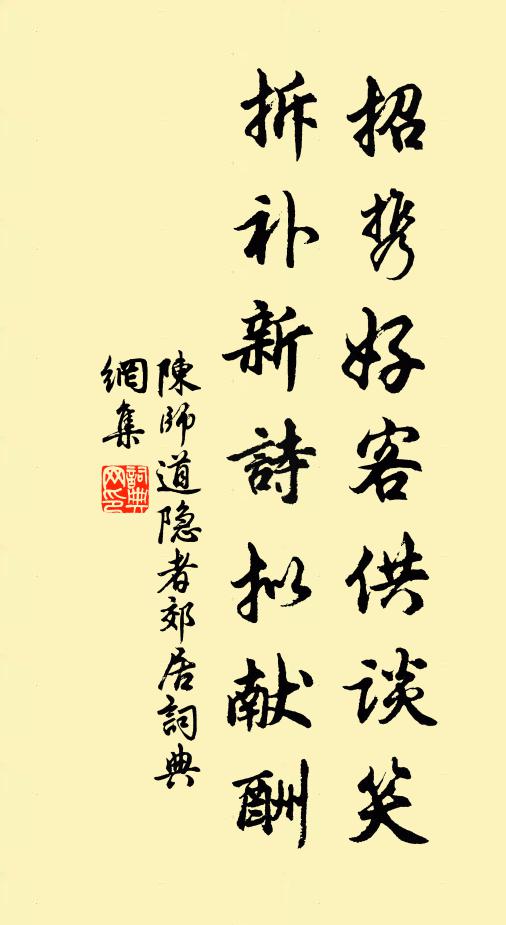 招携好客供谈笑
拆补新詩拟献酬
陳师道隐者郊居詞典
網集
詞典網印